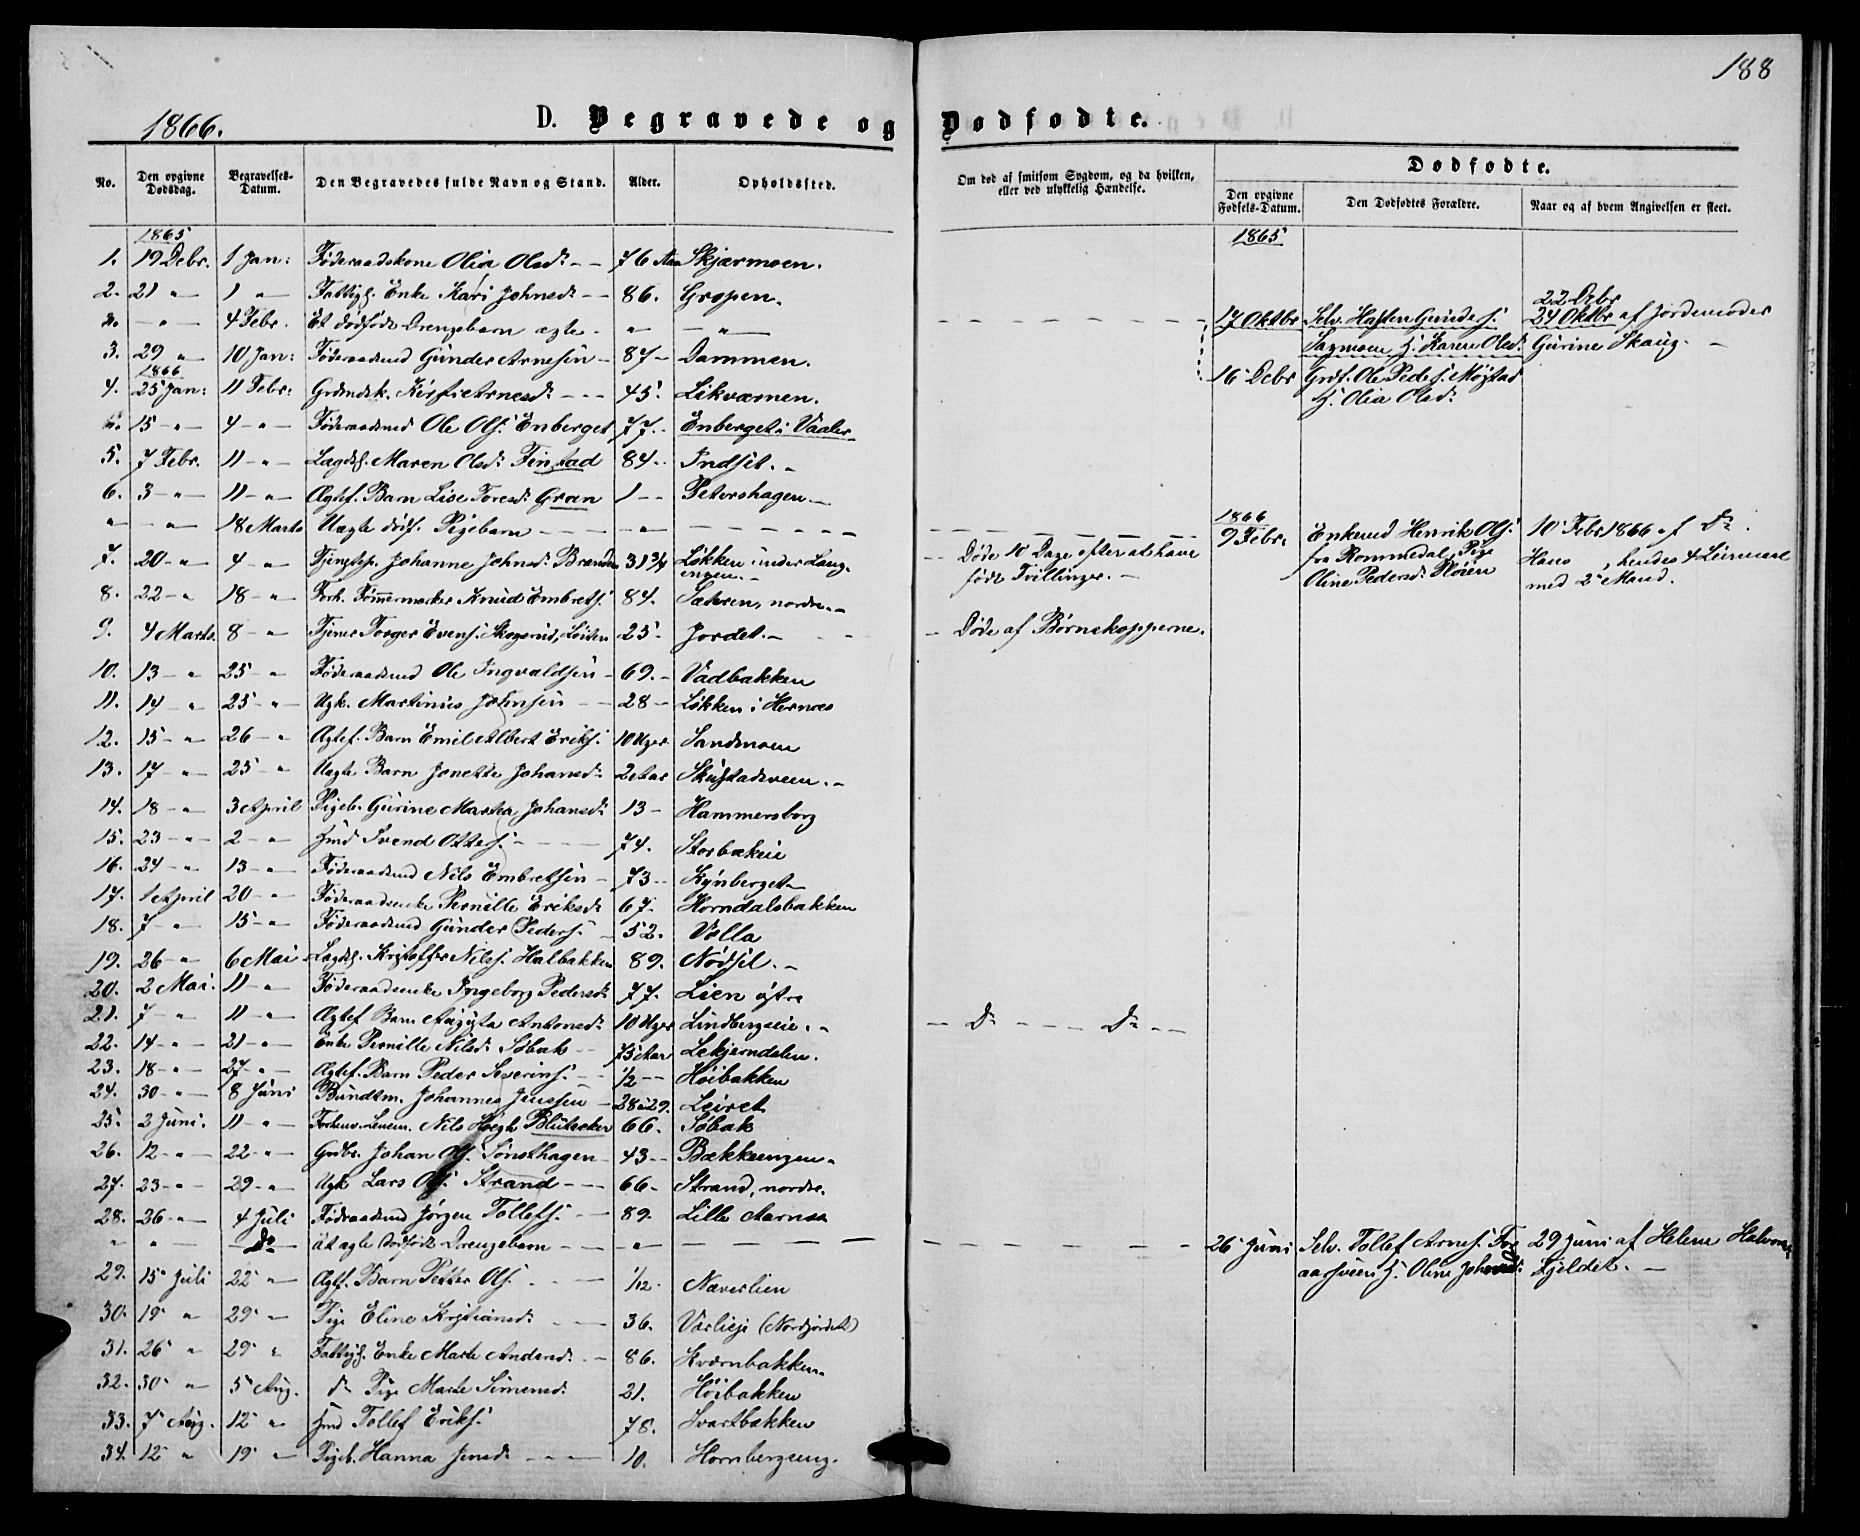 188
1866.
D. Begravede og Dødfødte.
No. | Den opgivne Dødsdag. | Begravelses-Datum. | Den Begravedes fulde Navn og Stand. | Alder. | Opholdssted. | Om død af smitsom Sygdom, og da hvilken, eller ved ulykkelig Hændelse. | Dødfødte. | Den opgivne Fødsels-Datum. | Den Dødfødtes Forældre. | Naar og af hvem Angivelsen er skeet.
1865 | 1865
1. 19 Debr. 1 Jan: Føderaadskone Olia Olsd: - - 76 Aar Skjærmoen.
2. 21 " 1 " Fattigl. Enke Kari Johnsd: - - 86. Gropen.
22 Debr
" - " - 4 Febr. Et dødfødt Drengebarn ægte - " - " - 17 Oktbr Selv. Halsten Gunders. 24 Oktbr af Jordemoder
3. 29 " 10 Jan: Føderaadsmd Gunder Arnesen - 87 - Dammen. Sagmoen H. Karen Olsd: Gurine Skaug. -
1866
4. 25 Jan: 11 Febr: Grdmdsk. Kirsti Arnesd: - - - 45. Likværnen. 16 Debr Grdf. Ole Peders. Møystad
H. Olia Olsd:
" 15 - " - 4 - " - Føderaadsmd Ole Ols. Enberget 77. - Enberget i Vaaler
5. 7 Febr. 11 - " - Lægdsl. Maren Olsd: Finstad 84. - Indset. -
6. 3 - " - 11 - " - Ægtef. Barn Lise Toresd: Gran 1 - - Petershagen -
1866
" - " - 18 Marts Uægte dødf. Pigebarn - " - 9 Febr: Enkemd Henrik Ols. 10 Febr 1866 af Do.
7. 20 - " - 4 - " - Tjenestep. Johanne Johnsd: Branden 31 3/4 Løkken under Lang- - Døde 10 Dage efter at have fra Rommedal, Pige Hans , hendes 4 Leiermaal
engen. - født Tvillinger. - Oline Pedersd: Fløien med 2 Mand.
8. 22 - " 18 - " Forh. Tømmermærker Knud Embrets. 84. Sætren, nordre. -
9. 4 Marts. 8 - " Tjener Torger Evens. Skogsrud, Løiten 25 - Jordet. - - Døde af Børnekopperne.
10. 13 - " 25 - " Føderaadsmd Ole Ingvaldsen - 69. - Vadbakken
11. 14 - " 25 - " - Ugk. Martinus Johnsen - - 28 - Løkken i Hernes
12. 15 - " 26 - " Ægtef. Barn Emil Albert Eriks. 10 Uger Sandmoen
13. 17 - " - 25 - " Uægte Barn Jonette Johansd: 2 Aar Skulstadveen. -
14. 18 - " - 3 April Pigeb. Gurine Martea Johansd: 13 - Hammersborg
15. 23 - " - 2 - " Hmd Svend Otters. - - - - 74. Storbækeie
16. 24 - " - 13 - " Føderaadsmd Nils Embretsen - 73 - - Kynberget -
17. 1 April 20 - " Føderaadsenke Pernille Eriksd: 67. Horndalsbakken
18. 7 - " - 15 - " Føderaadsmd Gunder Peders. - 52. Volla
19. 26 - " - 6 Mai - Lægdsl. Kristoffer Nils. Halbakken 89. Nødsil. -
20. 2 Mai. 11 - " Føderaadsenke Ingeborg Pedersd: 77. Lien østre
21. 7 - " 11 - " Ægtef Barn Augusta Antonsd: 10 Uger Lindbergseie. - - Do - - - Do - -
22. 14 - " - 21 - " - Enke Pernille Nilsd: Søbak - - 75 Aar Lekjerndalen.
23. 18 - " - 27 - " - Ægtef. Barn Peder Severins. - - 1/2 - - Høibakken
24. 30 - " - 8 Juni Bundtm. Johannes Jenssen - 28 à 29. Leiret
25. 2 Juni. 11 - " - Forhenv. Lensm. Nils Høegh Blütecker 66. Søbak
26. 12 - " - 22 - " - Grdbr. Johan Ols. Sønsthagen - 43 - - Bækkengen -
27. 23 - " - 29 - " - Ugk Lars Ols. Strand - - - 66 - Strand, nordre.
28. 26 - " - 4 Juli Føderaadsmd Jørgen Tollefs. - - 89. Lille Aarnes
" " - Do - Et ægte dødfødt Drengebarn - - - " - 26 Juni Selv. Tollef Arnes. For 29 Juni af Helene Halvors
29. 15 Juli 22 " - Ægtf. Barn Petter Ols. - - - - 1/12. Næverlien aasveen H. Oline Johnsd: Fjeldet. -
30. 19 " 29 " - Pige Eline Kristiansd: - - - 36. Vårlieje (Nordjordet)
31. 26 " 29 " Fattigl. Enke Marte Andersd: - - 86. Kværnbakken
32. 30 " - 5 Aug. do Pige Marte Simensd: 21. Høibakken
33. 7 Aug. 12 " Hmd Tollef Eriks. 78. Svartbakken
34. 12 " 19 " - Pigeb. Hanna Jensd: - - - 10. Hornbergseng.